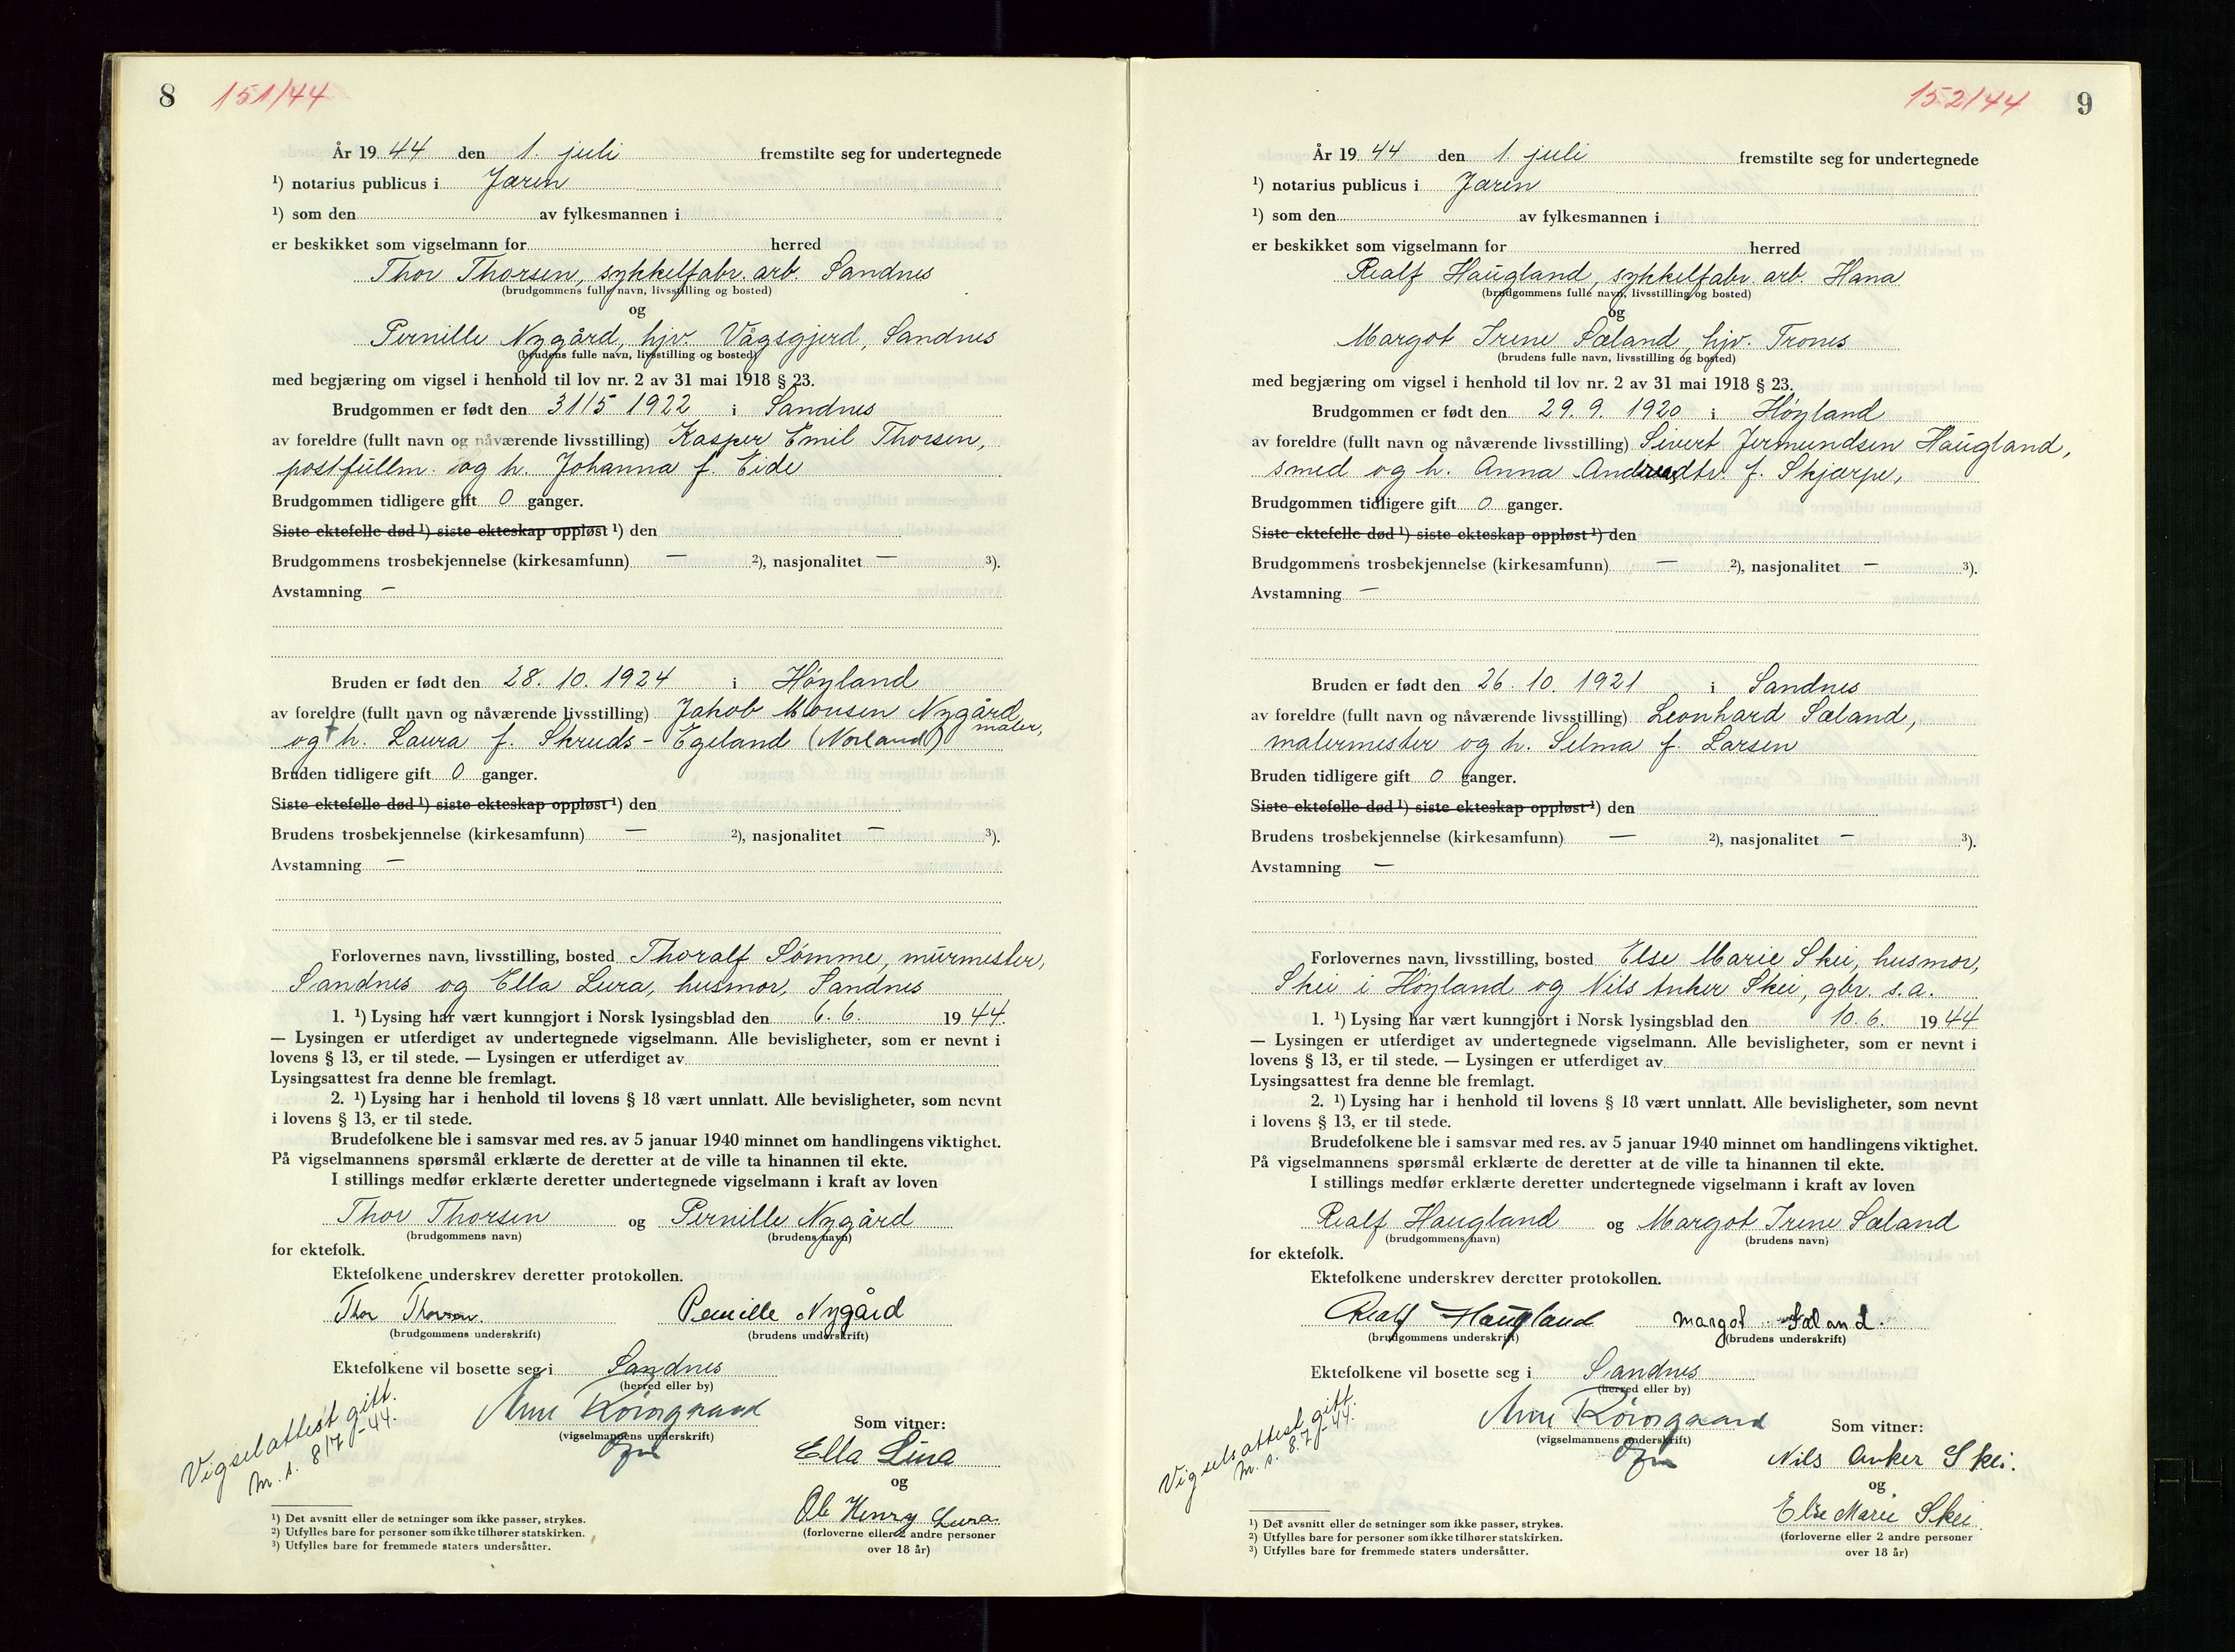 8 151/44
År 1944 den 1. juli fremstilte seg for undertegnede
¹) notarius publicus i Jæren
¹) som den av fylkesmannen i
er beskikket som vigselmann for herred
Thor Thorsen, sykkelfabr. arb. Sandnes
(brudgommens fulle navn, livsstilling og bosted)
og
Pernille Nygård, hjv. Vågsgjerd, Sandnes
(brudens fulle navn, livsstilling og bosted)
med begjæring om vigsel i henhold til lov nr. 2 av 31 mai 1918 § 23.
Brudgommen er født den 31/5 1922 i Sandnes
av foreldre (fullt navn og nåværende livsstilling) Kasper Emil Thorsen,
postfullm. og h. Johanna f. Eide
Brudgommen tidligere gift 0 ganger.
Siste ektefelle død ¹) siste ekteskap oppløst ¹) den
Brudgommens trosbekjennelse (kirkesamfunn) — ²), nasjonalitet — ³).
Avstamning —
Bruden er født den 28. 10. 1924 i Høyland
av foreldre (fullt navn og nåværende livsstilling) Jakob Monsen Nygård,
maler,
og † h. Laura f. Skruds-Egeland (Norland)
Bruden tidligere gift 0 ganger.
Siste ektefelle død ¹) siste ekteskap oppløst ¹) den
Brudens trosbekjennelse (kirkesamfunn) — ²), nasjonalitet — ³).
Avstamning —
Forlovernes navn, livsstilling, bosted Thoralf Sømme, murmester,
Sandnes og Ella Lura, husmor, Sandnes
1. ¹) Lysing har vært kunngjort i Norsk lysingsblad den 6. 6. 1944.
— Lysingen er utferdiget av undertegnede vigselmann. Alle bevisligheter, som er nevnt i
lovens § 13, er til stede. — Lysingen er utferdiget av
Lysingsattest fra denne ble fremlagt.
2. ¹) Lysing har i henhold til lovens § 18 vært unnlatt. Alle bevisligheter, som nevnt
i lovens § 13, er til stede.
Brudefolkene ble i samsvar med res. av 5 januar 1940 minnet om handlingens viktighet.
På vigselmannens spørsmål erklærte de deretter at de ville ta hinannen til ekte.
I stillings medfør erklærte deretter undertegnede vigselmann i kraft av loven
Thor Thorsen og Pernille Nygård
(brudgommens navn) (brudens navn)
for ektefolk.
Ektefolkene underskrev deretter protokollen.
Thor Thorsen. Pernille Nygård
(brudgommens underskrift) (brudens underskrift)
Ektefolkene vil bosette seg i Sandnes
(herred eller by)
Vigselattest gitt.
m. s. 8/7-44.
(vigselmannens underskrift)
Som vitner:
Ella Lura
og
Ole Henry Lura.
(forloverne eller 2 andre personer
over 18 år)
¹) Det avsnitt eller de setninger som ikke passer, strykes.
²) Utfylles bare for personer som ikke tilhører statskirken.
³) Utfylles bare for fremmede staters undersåtter.
152/44 9
År 1944 den 1. juli fremstilte seg for undertegnede
¹) notarius publicus i Jæren
¹) som den av fylkesmannen i
er beskikket som vigselmann for herred
Realf Haugland, sykkelfabr. arb. Hana
(brudgommens fulle navn, livsstilling og bosted)
og
Margot Irene Sæland, hjv. Trones
(brudens fulle navn, livsstilling og bosted)
med begjæring om vigsel i henhold til lov nr. 2 av 31 mai 1918 § 23.
Brudgommen er født den 29. 9. 1920 i Høyland
av foreldre (fullt navn og nåværende livsstilling) Sivert Jermundsen Haugland,
smed og h. Anna Andreasdtr. f. Skjærpe,
Brudgommen tidligere gift 0 ganger.
Siste ektefelle død ¹) siste ekteskap oppløst ¹) den
Brudgommens trosbekjennelse (kirkesamfunn) — ²), nasjonalitet — ³).
Avstamning —
Bruden er født den 26. 10. 1921 i Sandnes
av foreldre (fullt navn og nåværende livsstilling) Leonhard Sæland,
malermester og h. Selma f. Larsen
Bruden tidligere gift 0 ganger.
Siste ektefelle død ¹) siste ekteskap oppløst ¹) den
Brudens trosbekjennelse (kirkesamfunn) — ²), nasjonalitet — ³).
Avstamning —
Forlovernes navn, livsstilling, bosted Else Marie Skei, husmor,
Skei i Høyland og Nils Anker Skei, gbr. s.a.
1. ¹) Lysing har vært kunngjort i Norsk lysingsblad den 10. 6. 1944
— Lysingen er utferdiget av undertegnede vigselmann. Alle bevisligheter, som er nevnt i
lovens § 13, er til stede. — Lysingen er utferdiget av
Lysingsattest fra denne ble fremlagt.
2. ¹) Lysing har i henhold til lovens § 18 vært unnlatt. Alle bevisligheter, som nevnt
i lovens § 13, er til stede.
Brudefolkene ble i samsvar med res. av 5 januar 1940 minnet om handlingens viktighet.
På vigselmannens spørsmål erklærte de deretter at de ville ta hinannen til ekte.
I stillings medfør erklærte deretter undertegnede vigselmann i kraft av loven
Realf Haugland og Margot Irene Sæland
(brudgommens navn) (brudens navn)
for ektefolk.
Ektefolkene underskrev deretter protokollen.
Realf Haugland Margot Sæland.
(brudgommens underskrift) (brudens underskrift)
Ektefolkene vil bosette seg i Sandnes
(herred eller by)
Vigselsattest gitt.
m. s. 8.7.-44.
(vigselmannens underskrift)
Som vitner:
Nils Anker Skei.
og
Else Marie Skei.
(forloverne eller 2 andre personer
over 18 år)
¹) Det avsnitt eller de setninger som ikke passer, strykes.
²) Utfylles bare for personer som ikke tilhører statskirken.
³) Utfylles bare for fremmede staters undersåtter.